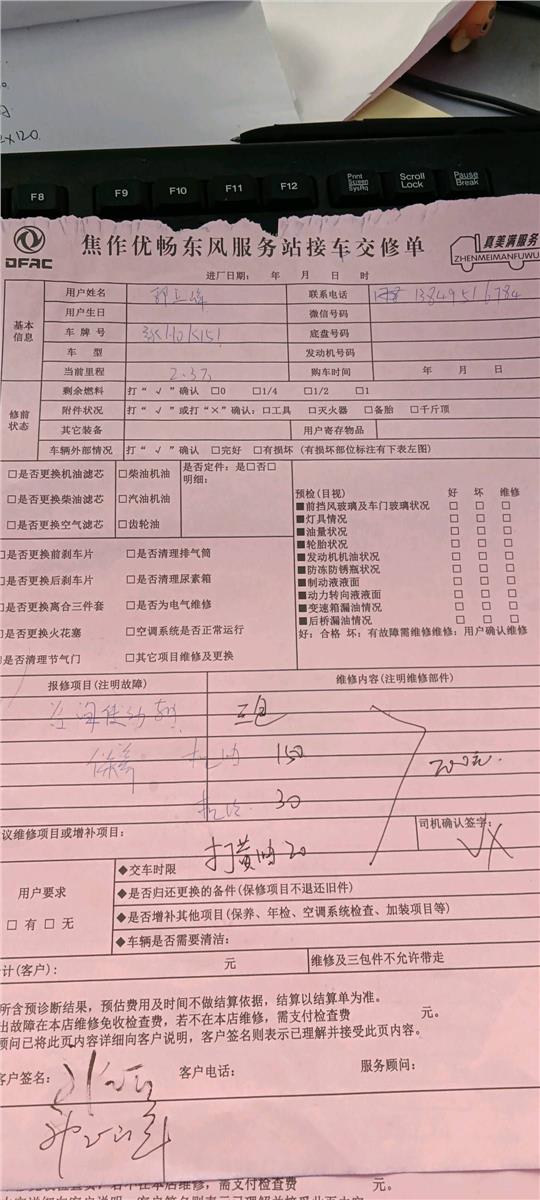 2×120
F8 F9 F10 F11 F12 Print Screen SysRq Scroll Lock Pause Break
DFAC
焦作优畅东风服务站接车交修单
真美满服务
ZHENMEIMANFUWU
进厂日期： 年 月 日 时
基本信息
用户姓名
联系电话 13849516784
用户生日
微信号码
车牌号
底盘号码
车 型
发动机号码
当前里程 2.3万
购车时间 年 月 日
修前状态
剩余燃料 打“√”确认 □0 □1/4 □1/2 □1
附件状况 打“√”或打“×”确认：□工具 □灭火器 □备胎 □千斤顶
其它装备
用户寄存物品
车辆外部情况 打“√”确认 □完好 □有损坏（有损坏部位标注有下表左图）
□是否更换机油滤芯 □柴油机油
□是否更换柴油滤芯 □汽油机油
□是否更换空气滤芯 □齿轮油
是否定件：是□否□
明细：
□是否更换前刹车片 □是否清理排气筒
□是否更换后刹车片 □是否清理尿素箱
□是否更换离合三件套 □是否为电气维修
□是否更换火花塞 □空调系统是否正常运行
□是否清理节气门 □其它项目维修及更换
预检(目视) 好 坏 维修
■前挡风玻璃及车门玻璃状况 □ □ □
■灯具情况 □ □ □
■油量状况 □ □ □
■轮胎状况 □ □ □
■发动机机油状况 □ □ □
■防冻防锈瓶状况 □ □ □
■制动液液面 □ □ □
■动力转向液液面 □ □ □
■变速箱漏油情况 □ □ □
■后桥漏油情况 □ □ □
好：合格 坏：有故障需维修维修：用户确认维修
报修项目(注明故障) 维修内容(注明维修部件)
三包
保养 机油 150
机滤 30
200元.
议维修项目或增补项目：
打黄油20
司机确认签字：
用户要求
□ 有 □ 无
◆交车时限
◆是否归还更换的备件(保修项目不退还旧件)
◆是否增补其他项目(保养、年检、空调系统检查、加装项目等)
◆车辆是否需要清洁：
计(客户)： 元
维修及三包件不允许带走
所含预诊断结果，预估费用及时间不做结算依据，结算以结算单为准。
出故障在本店维修免收检查费，若不在本店维修，需支付检查费 元。
顾问已将此页内容详细向客户说明，客户签名则表示已理解并接受此页内容。
客户签名：
客户电话：
服务顾问：
在本店维修，需支付检查费 元。